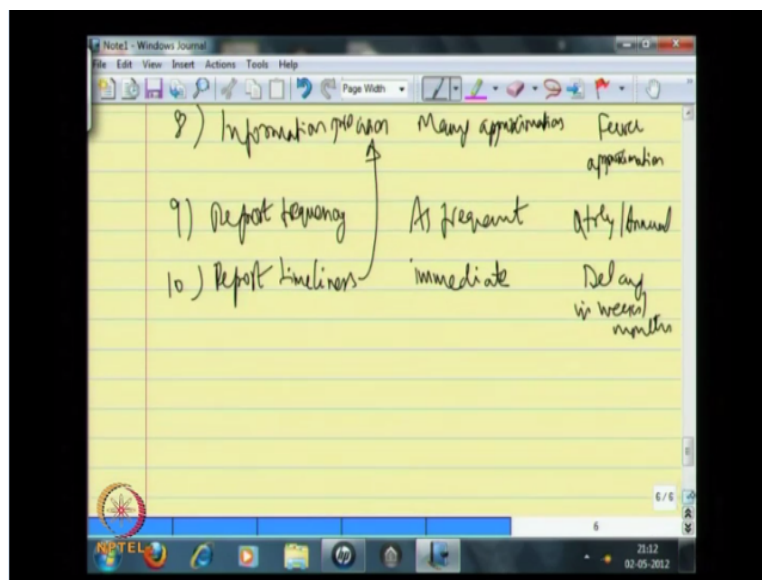 Note1 - Windows Journal
File Edit View Insert Actions Tools Help
Page Width
8) Information precision Many approximation Fewer
approximation
9) Report frequency As frequent Qtrly/Annual
10) Report timeliness immediate Delay
in weeks/
months
6/6
6
21:12
02-05-2012
NPTEL
hp